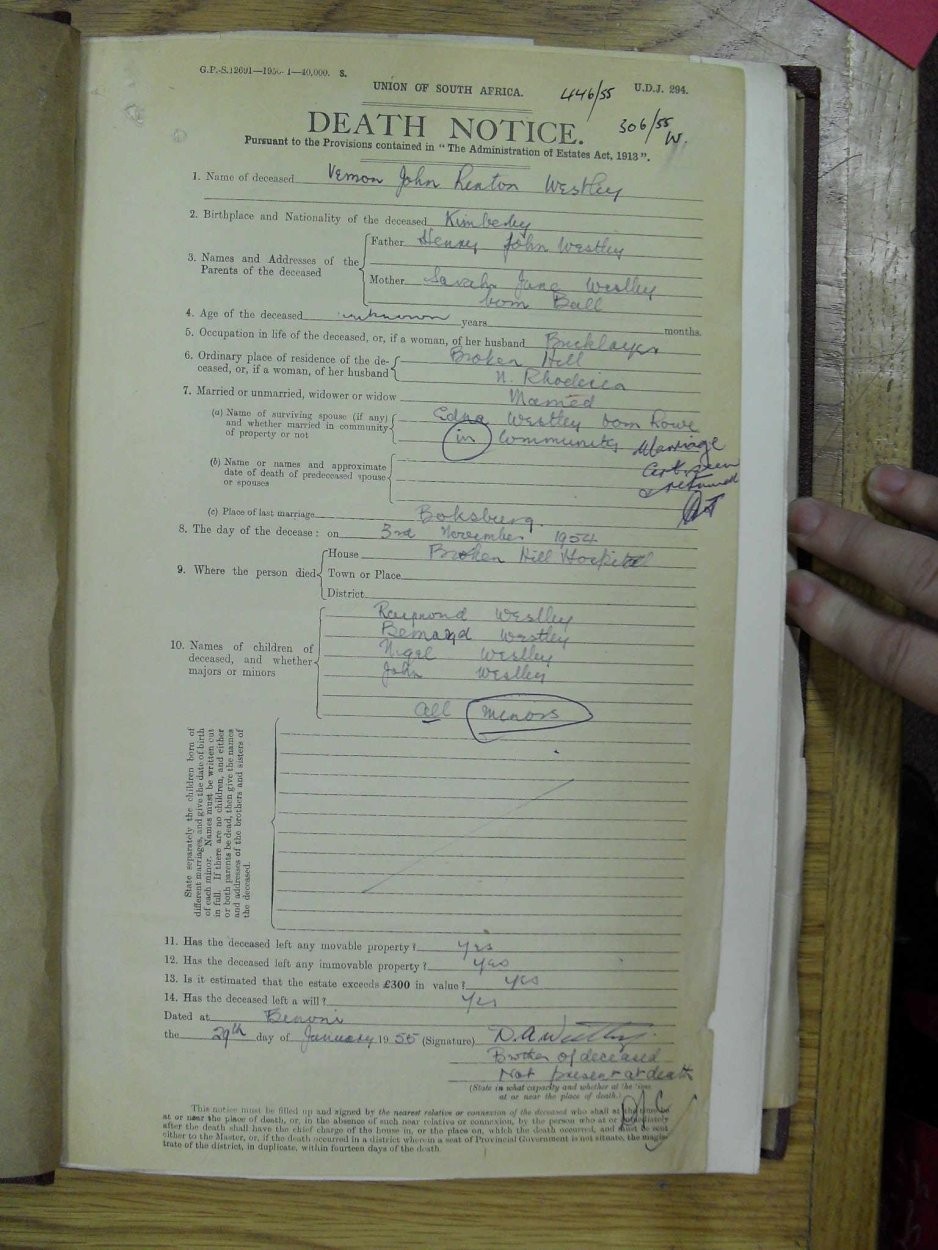 G.P.-S.12691—1950-1—40,000. S.
UNION OF SOUTH AFRICA.
446/55
U.D.J. 294.
306/55
W.
DEATH NOTICE.
Pursuant to the Provisions contained in “ The Administration of Estates Act, 1913 ”.
1. Name of deceased Vernon John Renton Westley
2. Birthplace and Nationality of the deceased Kimberley
3. Names and Addresses of the Parents of the deceased
Father Henry John Westley
Mother Sarah Jane Westley
born Ball
4. Age of the deceased unknown years months.
5. Occupation in life of the deceased, or, if a woman, of her husband Bricklayer
6. Ordinary place of residence of the de-
ceased, or, if a woman, of her husband
Broken Hill
N. Rhodesia
7. Married or unmarried, widower or widow Married
(a) Name of surviving spouse (if any)
and whether married in community
of property or not
Edna Westley born Lowe
in Community
Marriage
Cert seen
& returned
(b) Name or names and approximate
date of death of predeceased spouse
or spouses
(c) Place of last marriage Boksburg.
8. The day of the decease: on 3rd November 1954
9. Where the person died
House Broken Hill Hospital
Town or Place
District
10. Names of children of
deceased, and whether
majors or minors
Raymond Westley
Bernard Westley
Nigel Westley
John Westley
All minors
State separately the children born of
different marriages, and give the date of birth
of each minor. Names must be written out
in full. If there are no children, and either
or both parents be dead, then give the names
and addresses of the brothers and sisters of
the deceased.
11. Has the deceased left any movable property? Yes
12. Has the deceased left any immovable property? Yes
13. Is it estimated that the estate exceeds £300 in value? Yes
14. Has the deceased left a will? Yes
Dated at Benoni
the 29th day of January 1955 (Signature) D.A. Westley
Brother of deceased
Not present at death
(State in what capacity and whether at the time
at or near the place of death.)
This notice must be filled up and signed by the nearest relative or connexion of the deceased who shall at the time be
at or near the place of death, or, in the absence of such near relative or connexion, by the person who at or immediately
after the death shall have the chief charge of the house in, or the place on, which the death occurred, and must be sent
either to the Master, or, if the death occurred in a district wherein a seat of Provincial Government is not situate, the magis-
trate of the district, in duplicate, within fourteen days of the death.